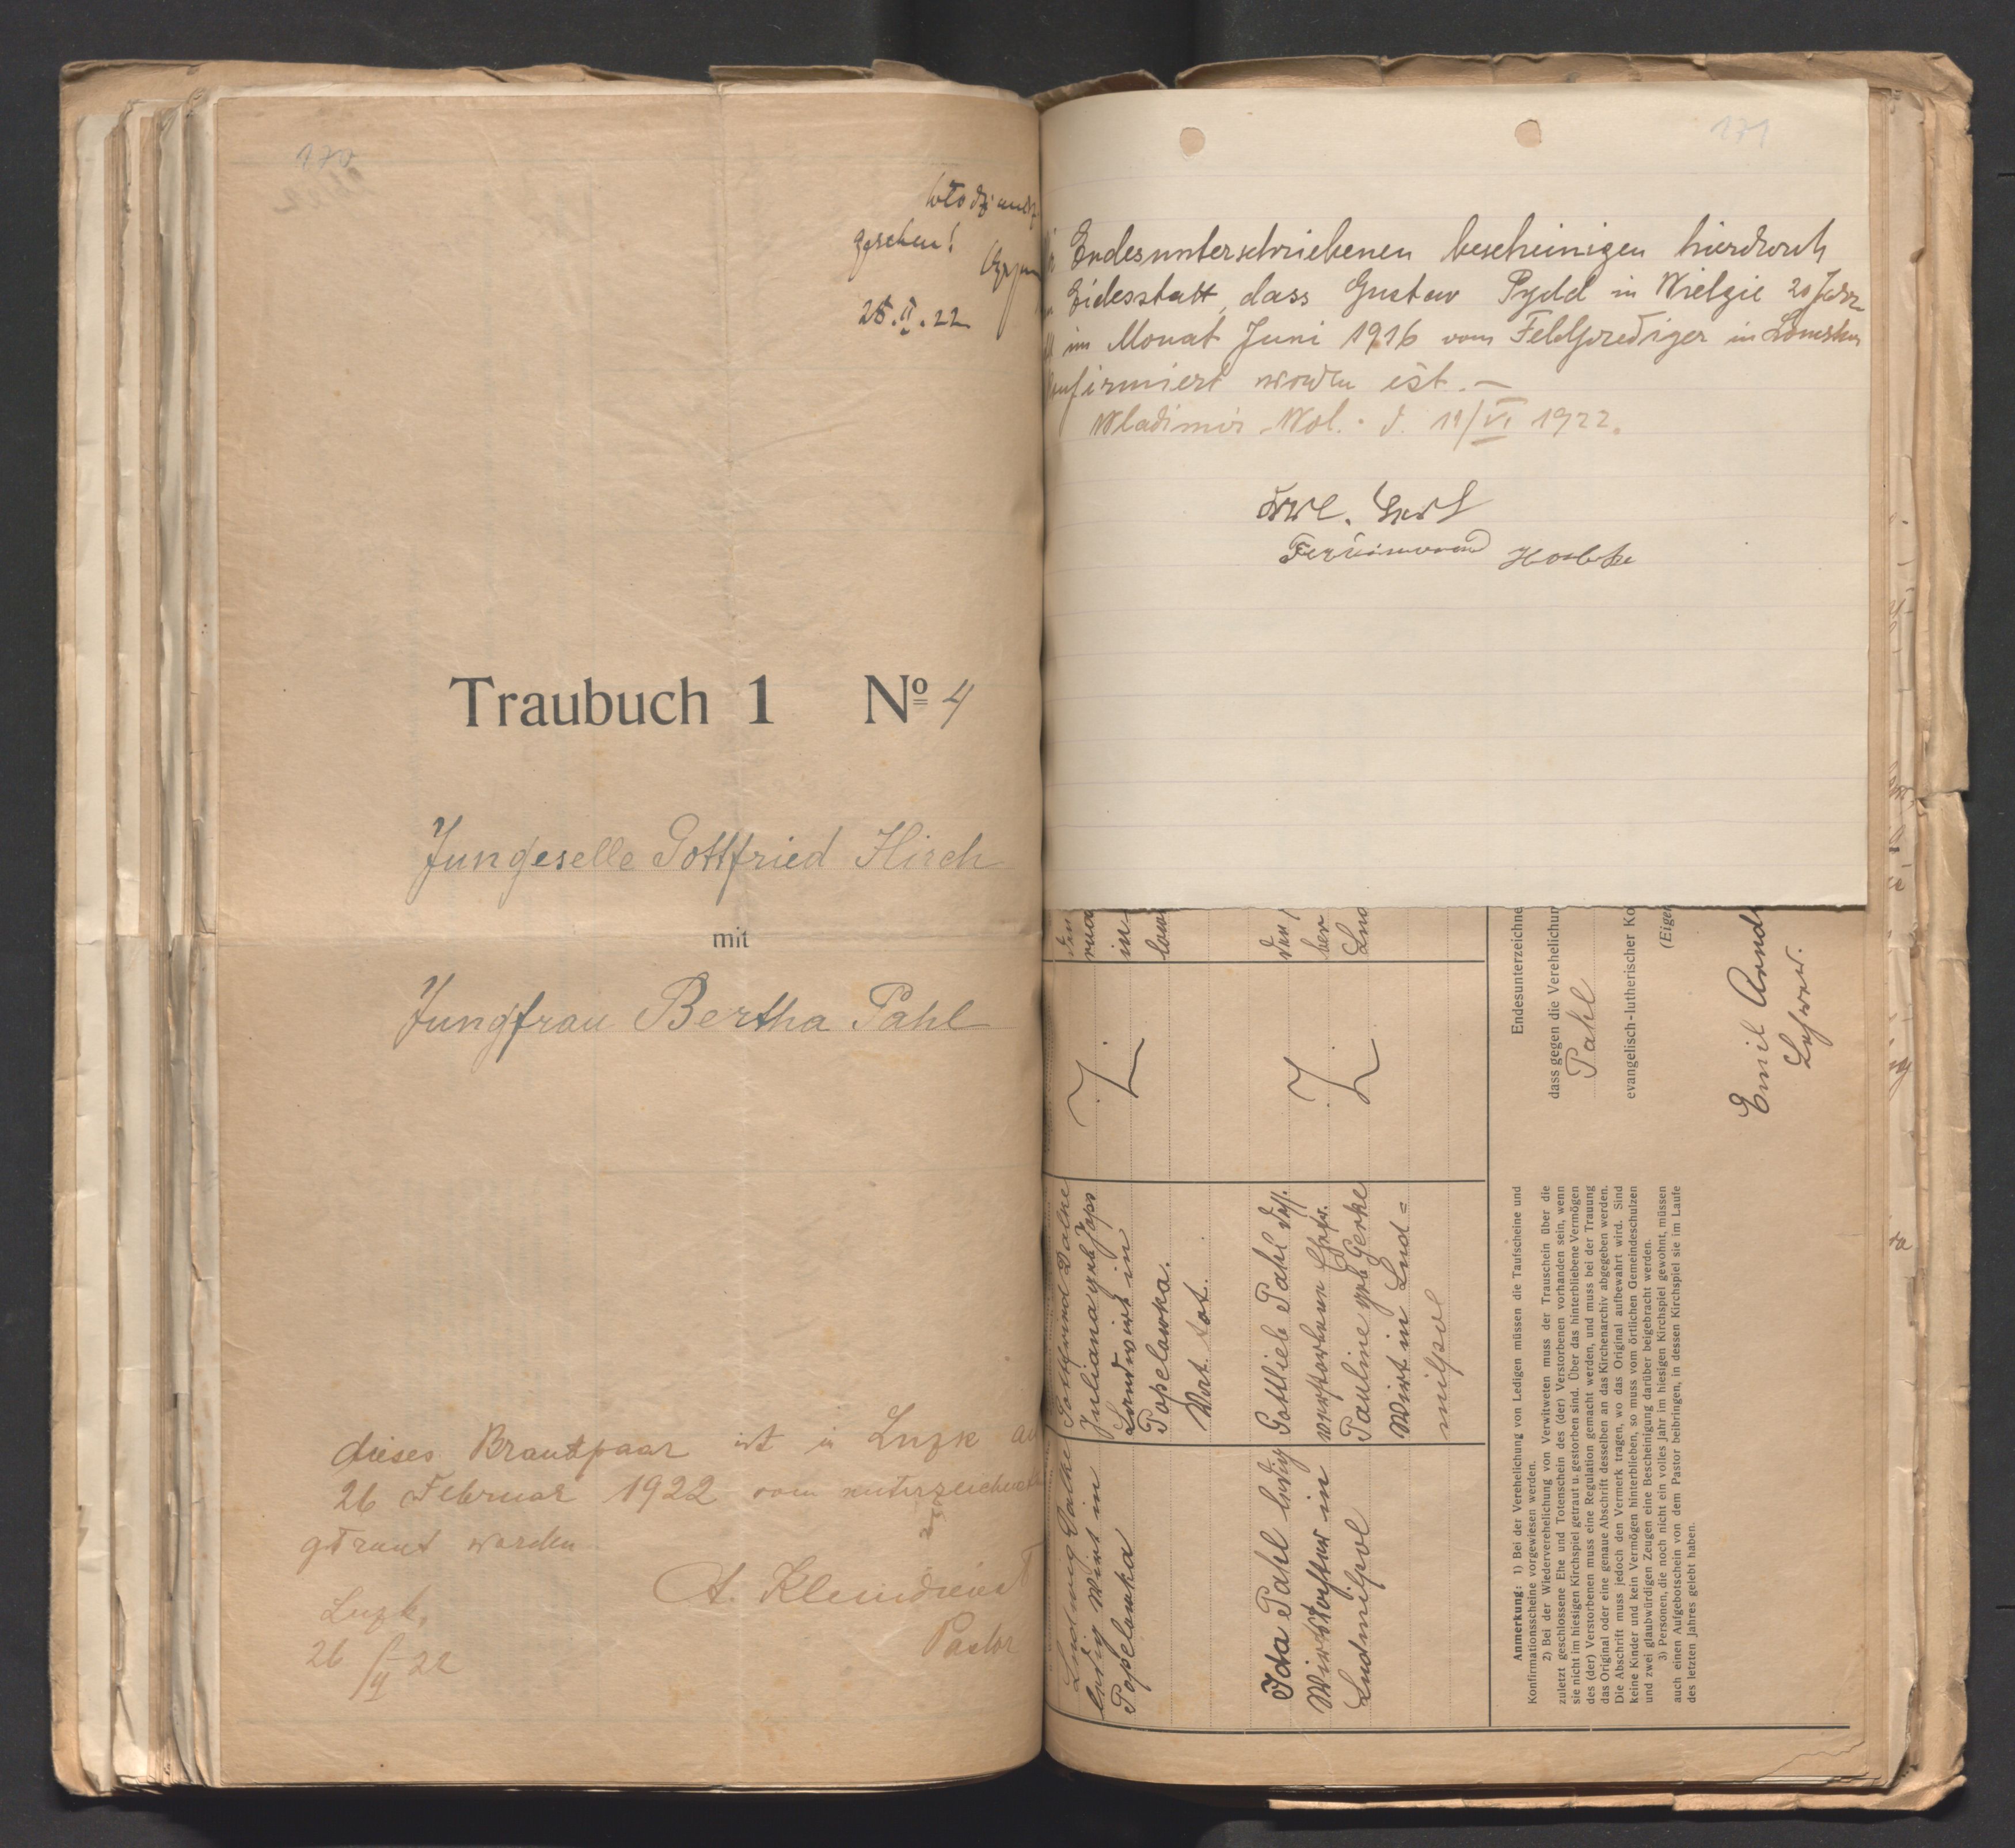 170
gesehen!
25.II.22
Traubuch 1 Nº 4
Jungeselle Gottfried Hirch
mit
Jungfrau Bertha Pahl
dieses Brautpaar ist in Luzk
26 Februar 1922 vom
getraut worden
A. Kleindienst
Pastor
Luzk,
26/II 22
171
Endesunterschriebenen bescheinigen hierdurch
Eidesstatt, dass Gustav Pydd in Wielgie 20 Jahr
im Monat Juni 1916 vom Feldprediger in
worden ist. –
Wladimir Wol. d. 11/VI 1922.
Ferdinand
Ludwig Dalke
ledig Wirt in
Popelowka
Gottfried Dalke
Juliana geb. Japs
Landwirt in
Popelowka.
tot.
den
in
Ida Pahl ledig
Wirtstochter in
Ludmilpol
Gottlieb Pahl dess.
verstorbene Ehefr.
Pauline geb Gerke
Wirt in Lud=
milpol
den
ber
Lud
Endesunterzeichne
dass gegen die Verehelichun
Pahl
evangelisch-lutherischer Ko
(Eigen
Emil Arnd
Lehrer.
Anmerkung: 1) Bei der Verehelichung von Ledigen müssen die Taufscheine und
Konfirmationsscheine vorgewiesen werden.
2) Bei der Wiederverehelichung von Verwitweten muss der Trauschein über die
zuletzt geschlossene Ehe und Totenschein des (der) Verstorbenen vorhanden sein, wenn
sie nicht im hiesigen Kirchspiel getraut u. gestorben sind. Über das hinterbliebene Vermögen
des (der) Verstorbenen muss eine Regulation gemacht werden, und muss bei der Trauung
das Original oder eine genaue Abschrift desselben an das Kirchenarchiv abgegeben werden.
Die Abschrift muss jedoch den Vermerk tragen, wo das Original aufbewahrt wird. Sind
keine Kinder und kein Vermögen hinterblieben, so muss vom örtlichen Gemeindeschulzen
und zwei glaubwürdigen Zeugen eine Bescheinigung darüber beigebracht werden.
3) Personen, die noch nicht ein volles Jahr im hiesigen Kirchspiel gewohnt, müssen
auch einen Aufgebotschein von dem Pastor beibringen, in dessen Kirchspiel sie im Laufe
des letzten Jahres gelebt haben.